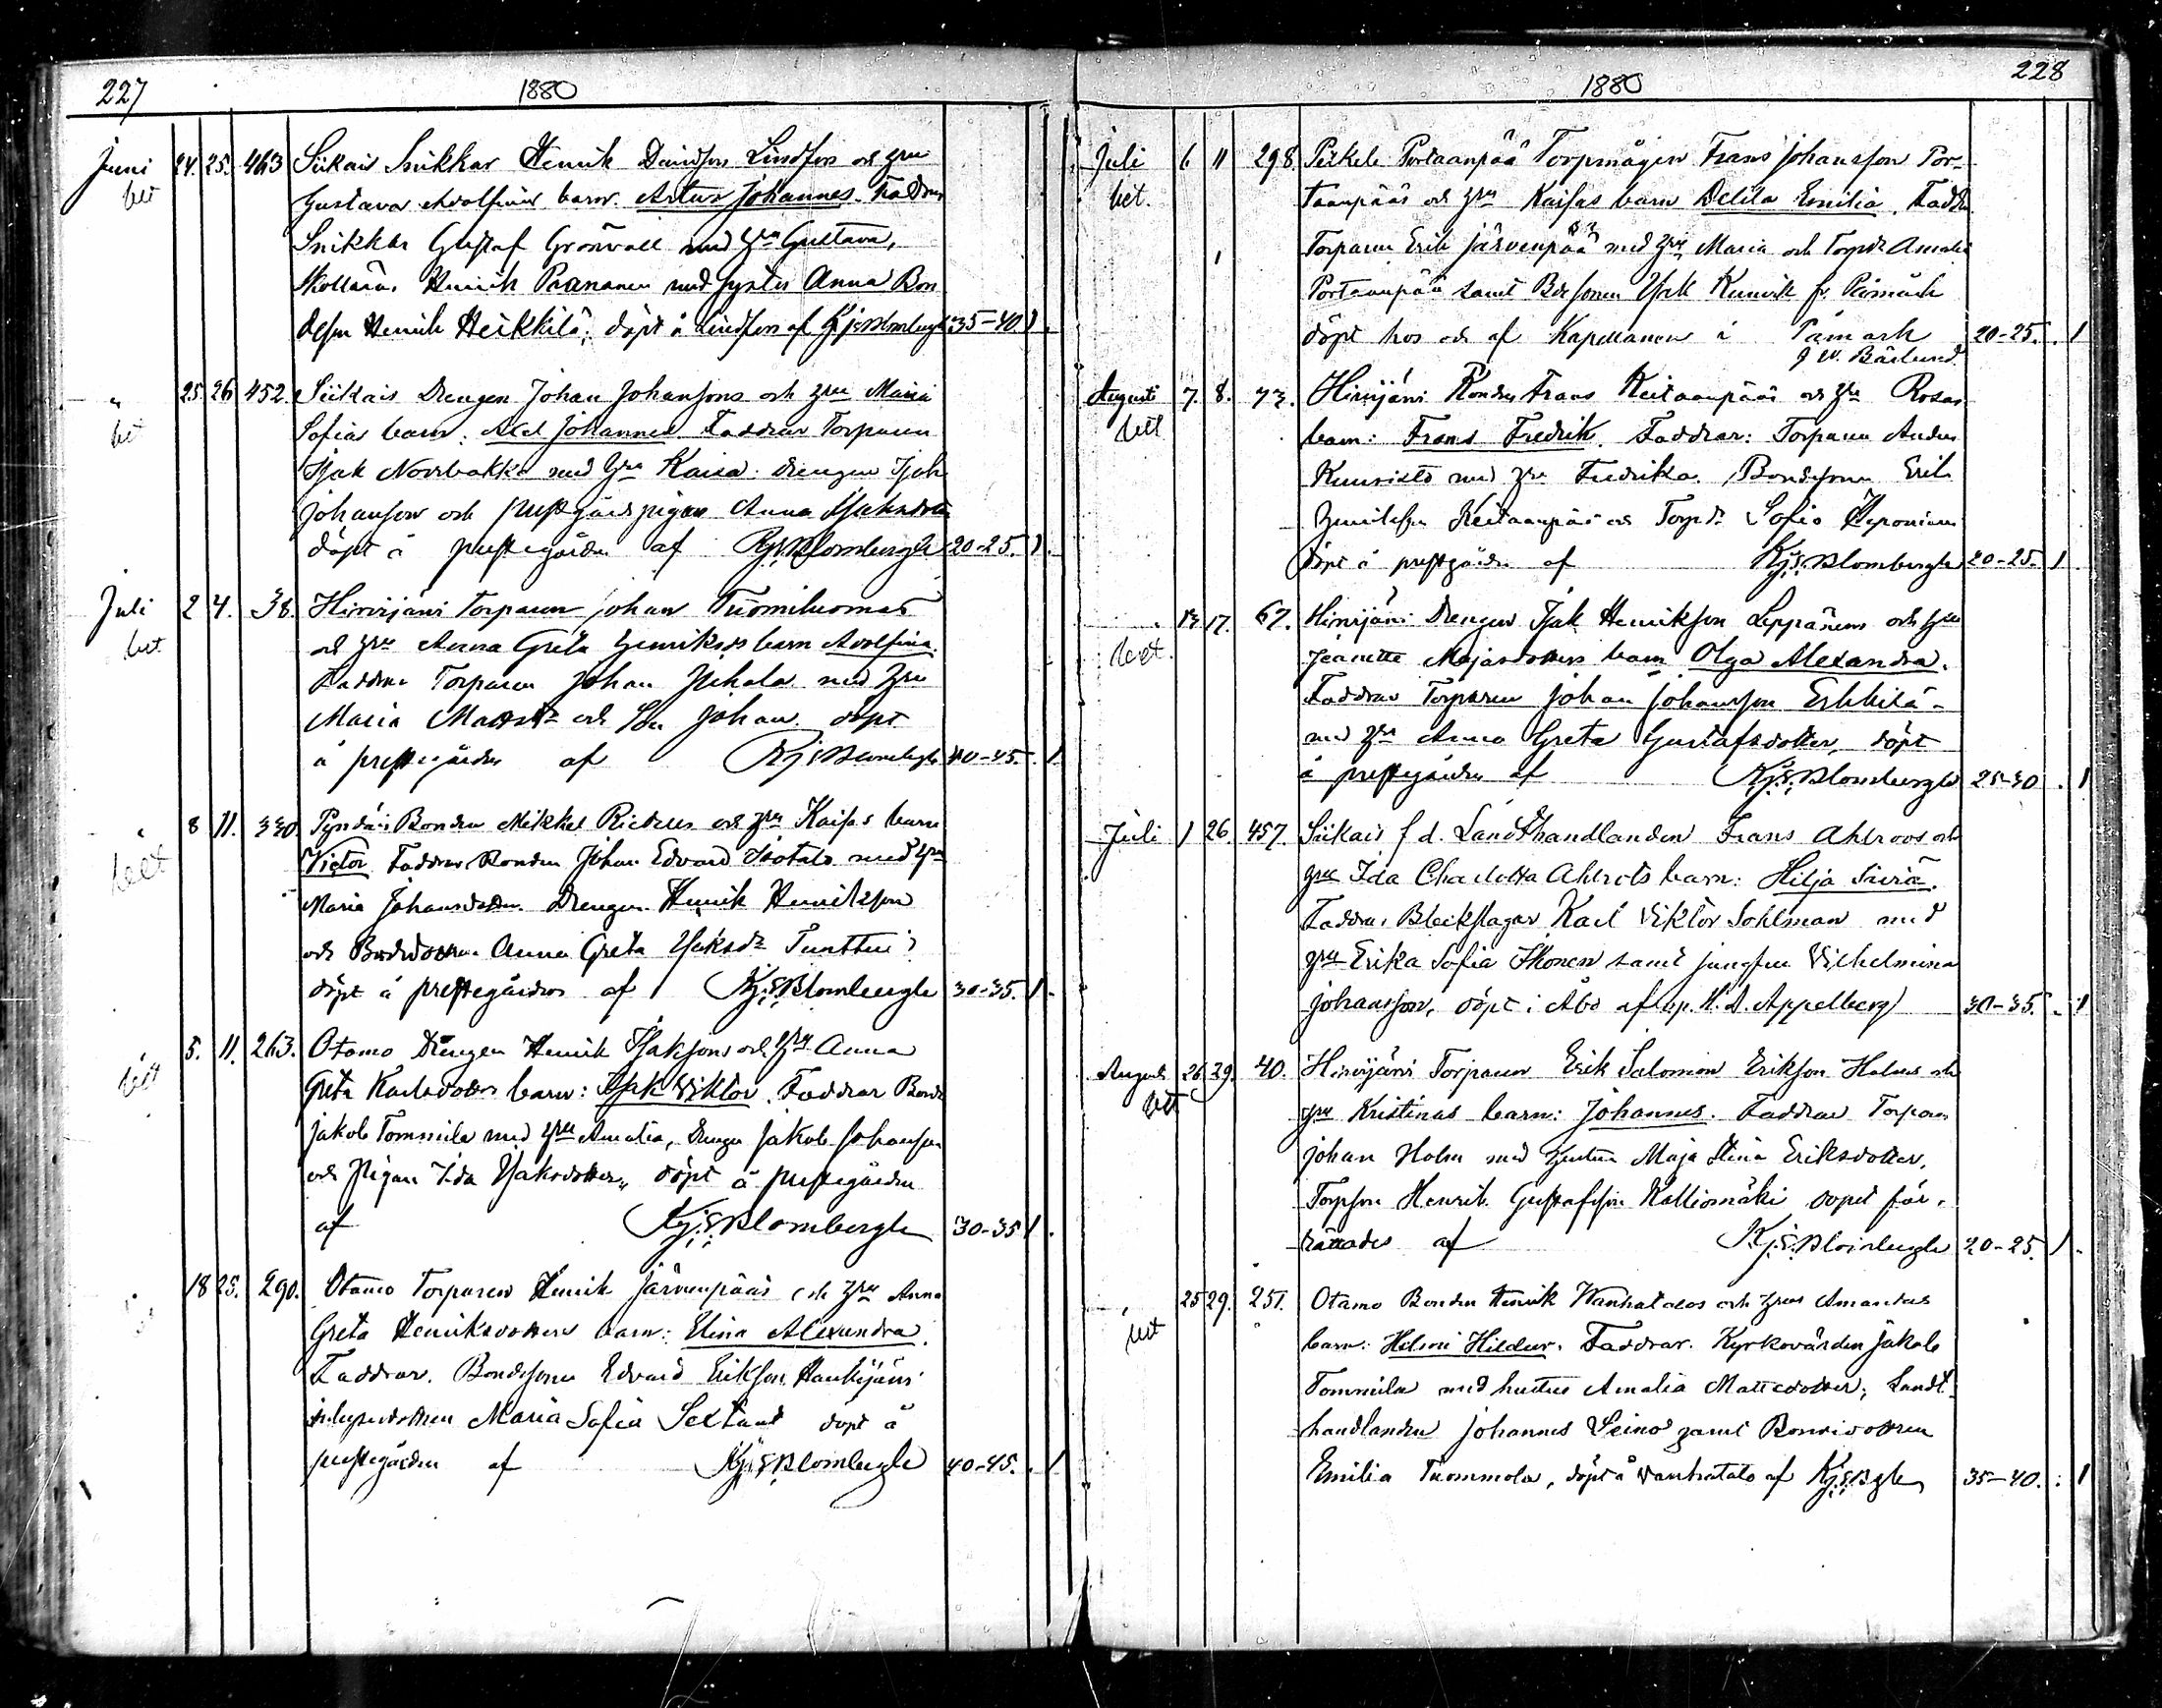 227
1880
Juni 24. 25. 463 Siikais Snikkar Henrik Davidson Lindfors och hru
bet Gustava Adolfinas barn. Artur Johannes. Faddrar
Snikkar Gustaf Grönvall med hru Gustava,
Skollärar. Henrik Paananen med syster Anna Bon
desson Henrik Heikkilä; döpt å Lindfors af Kj:E:Blombergh 35-40 1.
" 25. 26 452. Siikais Drengen Johan Johansons och hru Maria
bet Sofias barn: Axel Johannes. Faddrar Torparen
Isak Norrbakka med hru Kaisa. drengen Isak
Johanson och prestgårdspigan Anna Isaksdotter
döpt å prestegården af Kj:E:Blombergh 20-25. 1.
Juli 2 4. 38. Hirvijärvi Torparen Johan Tuomiluomas
bet och hru Anna Greta Henriksds barn Adolfina.
Faddrar Torparen Johan med hru
Maria Mattsdr och Johan. döpt
å prestegården af Kj:E:Blombergh 40-45. 1
" 8 11. 330. Bonden Mikkel och hru Kaisas barn
bet Victor Faddrar Bonden Johan Edvard Isotalo med hru
Maria Johansdotter. Drengen Henrik Henrikson
och Bondedottren Anna Greta Isaksdr Tunttu
döpt å prestegården af Kj:E:Blombergh 30-35. 1.
bet 5. 11. 263. Otamo Drengen Henrik Isaksons och hru Anna
Greta Karlsdotters barn: Isak Viktor. Faddrar Bonde
Jakob Tommila med hru Amalia, drengen Jakob Johanson
och Pigan Ida Isaksdotter, döpt å prestegården
af Kj:E:Blombergh 30-35 1.
18 25. 290. Otamo Torparen Henrik Järvenpääs och hru Anna
Greta Henriksdotters barn: Elina Alexandra.
Faddrar. Bondesonen Edvard Erikson Haukijärvi
Maria Sofia döpt å
prestegården af Kj:E:Blombergh 40-45. 1
228
1880
Juli 6 11 298. Portaanpää Torpmågen Frans Johansson Por-
bet. taanpääs och hru Kaisas barn Delila Emilia. Faddr.
Torparen Erik Järvenpää med hru Maria och Torpdr Amalia
Portaanpää samt Isak fr. Påmark
döpt hos och af Kapellanen i Påmark 20-25. 1
J W. Bärlund.
Augusti 7. 8. 73. Hirvijärvi Frans Keitaanpääs och hru Rosas
bet barn: Frans Fredrik. Faddrar: Torparen Anders
Kuusisto med hru Fredrika. Bondesonen Erik
Keitaanpää och Torpdr Sofia
döpt å prestgården af Kj:E:Blombergh 20-25. 1
" 13 17. 67. Hirvijärvi Drengen Isak Henrikson Leppänens och hru
bet. Jeanette Majasdotters barn Olga Alexandra.
Faddrar Torparen Johan Johansson
med hru Anna Greta Gustafsdotter, döpt
å prestegården af Kj:E:Blombergh 25-30 . 1
Juli 1 26. 457. Siikais f d. Landthandlanden Frans Ahlroos och
hru Ida Charlotta Ahlrots barn: Hilja Siviä.
Faddrar Bleckslagar Karl Viktor Sohlman med
hru Erika Sofia Ikonen samt jungfru Vilhelmina
Johansson, döpt i Åbo af vp. K. A. Appelberg 30-35. . 1
August 26. 29. 40. Hirvijärvi Torparen Erik Salomon Erikson Holms och
bet hru Kristinas barn: Johannes. Faddrar Torparen
Johan Holm med hustru Maja Stina Eriksdotter,
Torpson Henrik Gustafsson Kalliomäki dopet för-
rättades af Kj:E:Blombergh 20-25. 1.
" 25 29. 251. Otamo Bonden Henrik Wanhatalos och hrus Amandas
bet barn: Helmi Hildur. Faddrar. Kyrkovärden Jakob
Tommila med hustru Amalia Mattsdotter; Landt-
handlanden Johannes Leino samt Bondedottren
Emilia Tuommola, döpt å Vanhatalo af Kj:E:Bgh 35-40. : 1